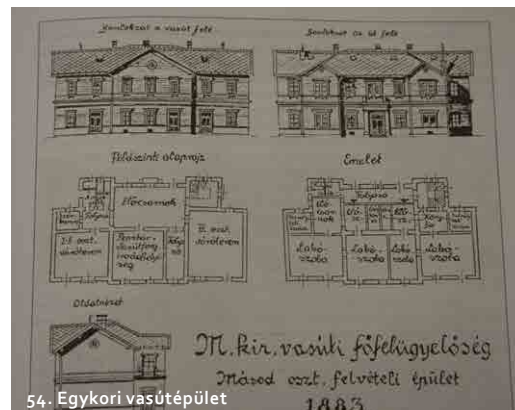 Homlokzat a vasút felé
Homlokzat az út felé
Földszint alaprajz
Emelet
Előcsarnok
Folyosó
váróterem
III. oszt.
váróterem
Folyosó
Kony-
ha
Lakó-
szoba
Lakó-
szoba
Lakó-
szoba
Lakó-
szoba
Oldalnézet
M. kir. vasúti főfelügyelőség
Másod oszt. felvételi épület
1883
54. Egykori vasútépület